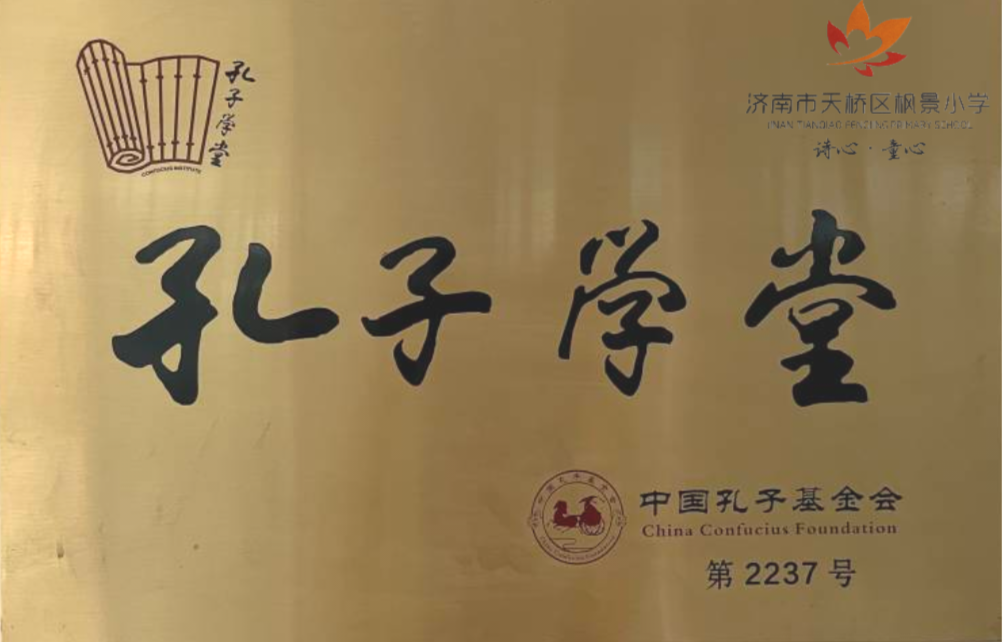 孔子学堂
CONFUCIUS INSTITUTE
济南市天桥区枫景小学
JINAN TIANQIAO FENGJING PRIMARY SCHOOL
诗心·童心
孔子学堂
中国孔子基金会
China Confucius Foundation
中国孔子基金会
China Confucius Foundation
第 2237 号